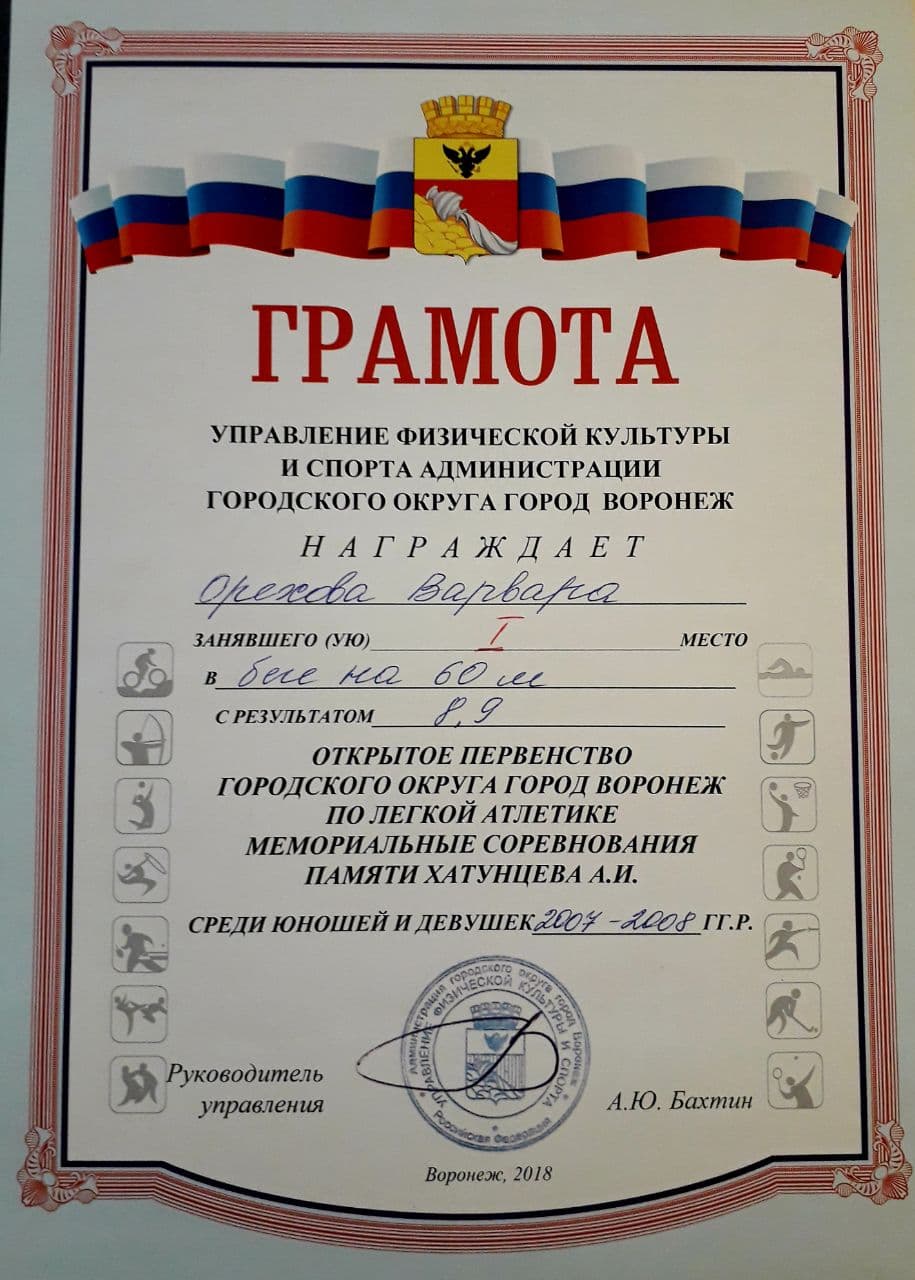 ГРАМОТА
УПРАВЛЕНИЕ ФИЗИЧЕСКОЙ КУЛЬТУРЫ
И СПОРТА АДМИНИСТРАЦИИ
ГОРОДСКОГО ОКРУГА ГОРОД ВОРОНЕЖ
НАГРАЖДАЕТ
Орехова Варвара
ЗАНЯВШЕГО (УЮ) I МЕСТО
В беге на 60 м
С РЕЗУЛЬТАТОМ 8,9
ОТКРЫТОЕ ПЕРВЕНСТВО
ГОРОДСКОГО ОКРУГА ГОРОД ВОРОНЕЖ
ПО ЛЕГКОЙ АТЛЕТИКЕ
МЕМОРИАЛЬНЫЕ СОРЕВНОВАНИЯ
ПАМЯТИ ХАТУНЦЕВА А.И.
СРЕДИ ЮНОШЕЙ И ДЕВУШЕК 2007-2008 ГГ.Р.
Администрация городского округа город Воронеж
УПРАВЛЕНИЕ ФИЗИЧЕСКОЙ КУЛЬТУРЫ И СПОРТА
Российская Федерация
Руководитель
управления
А.Ю. Бахтин
Воронеж, 2018